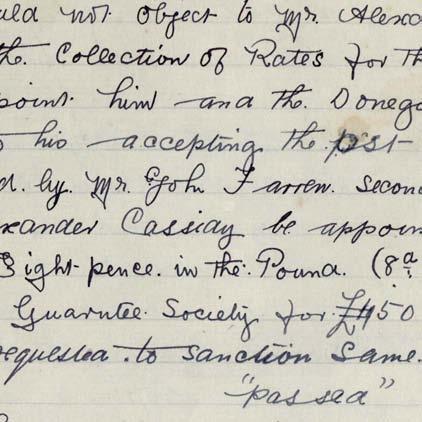 uld not object to Mr. Alexa
the Collection of Rates for th
point him and the Donega
o his accepting the post
d. by Mr John Farren. Second
exander Cassidy be appoin
Eight pence in the Pound. (8d.
Guarntee Society for £450
requested to sanction same.
"passed"